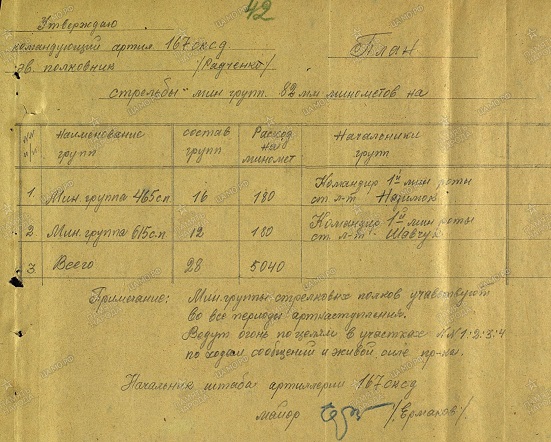 42
Утверждаю
командующий артил. 167 сксд
гв. полковник /Радченко/
План
стрельбы мин групп. 82 мм минометов на
№№ п/п Наименование групп состав групп Расход на миномет Начальники групп
1 Мин. группа 465 сп 16 180 Командир 1й мин роты ст. л-т -
2 Мин. группа 615 сп 12 180 Командир 1й мин роты ст. л-т - Шавчук
3 Всего 28 5040
Примечание: Мин. группы стрелковых полков участвуют
во все периоды артнаступления.
Ведут огонь по целям в участках №№ 1: 2: 3: 4
по ходам сообщений и живой силе пр-ка.
Начальник штаба артиллерии 167 сксд
майор /Ермаков/